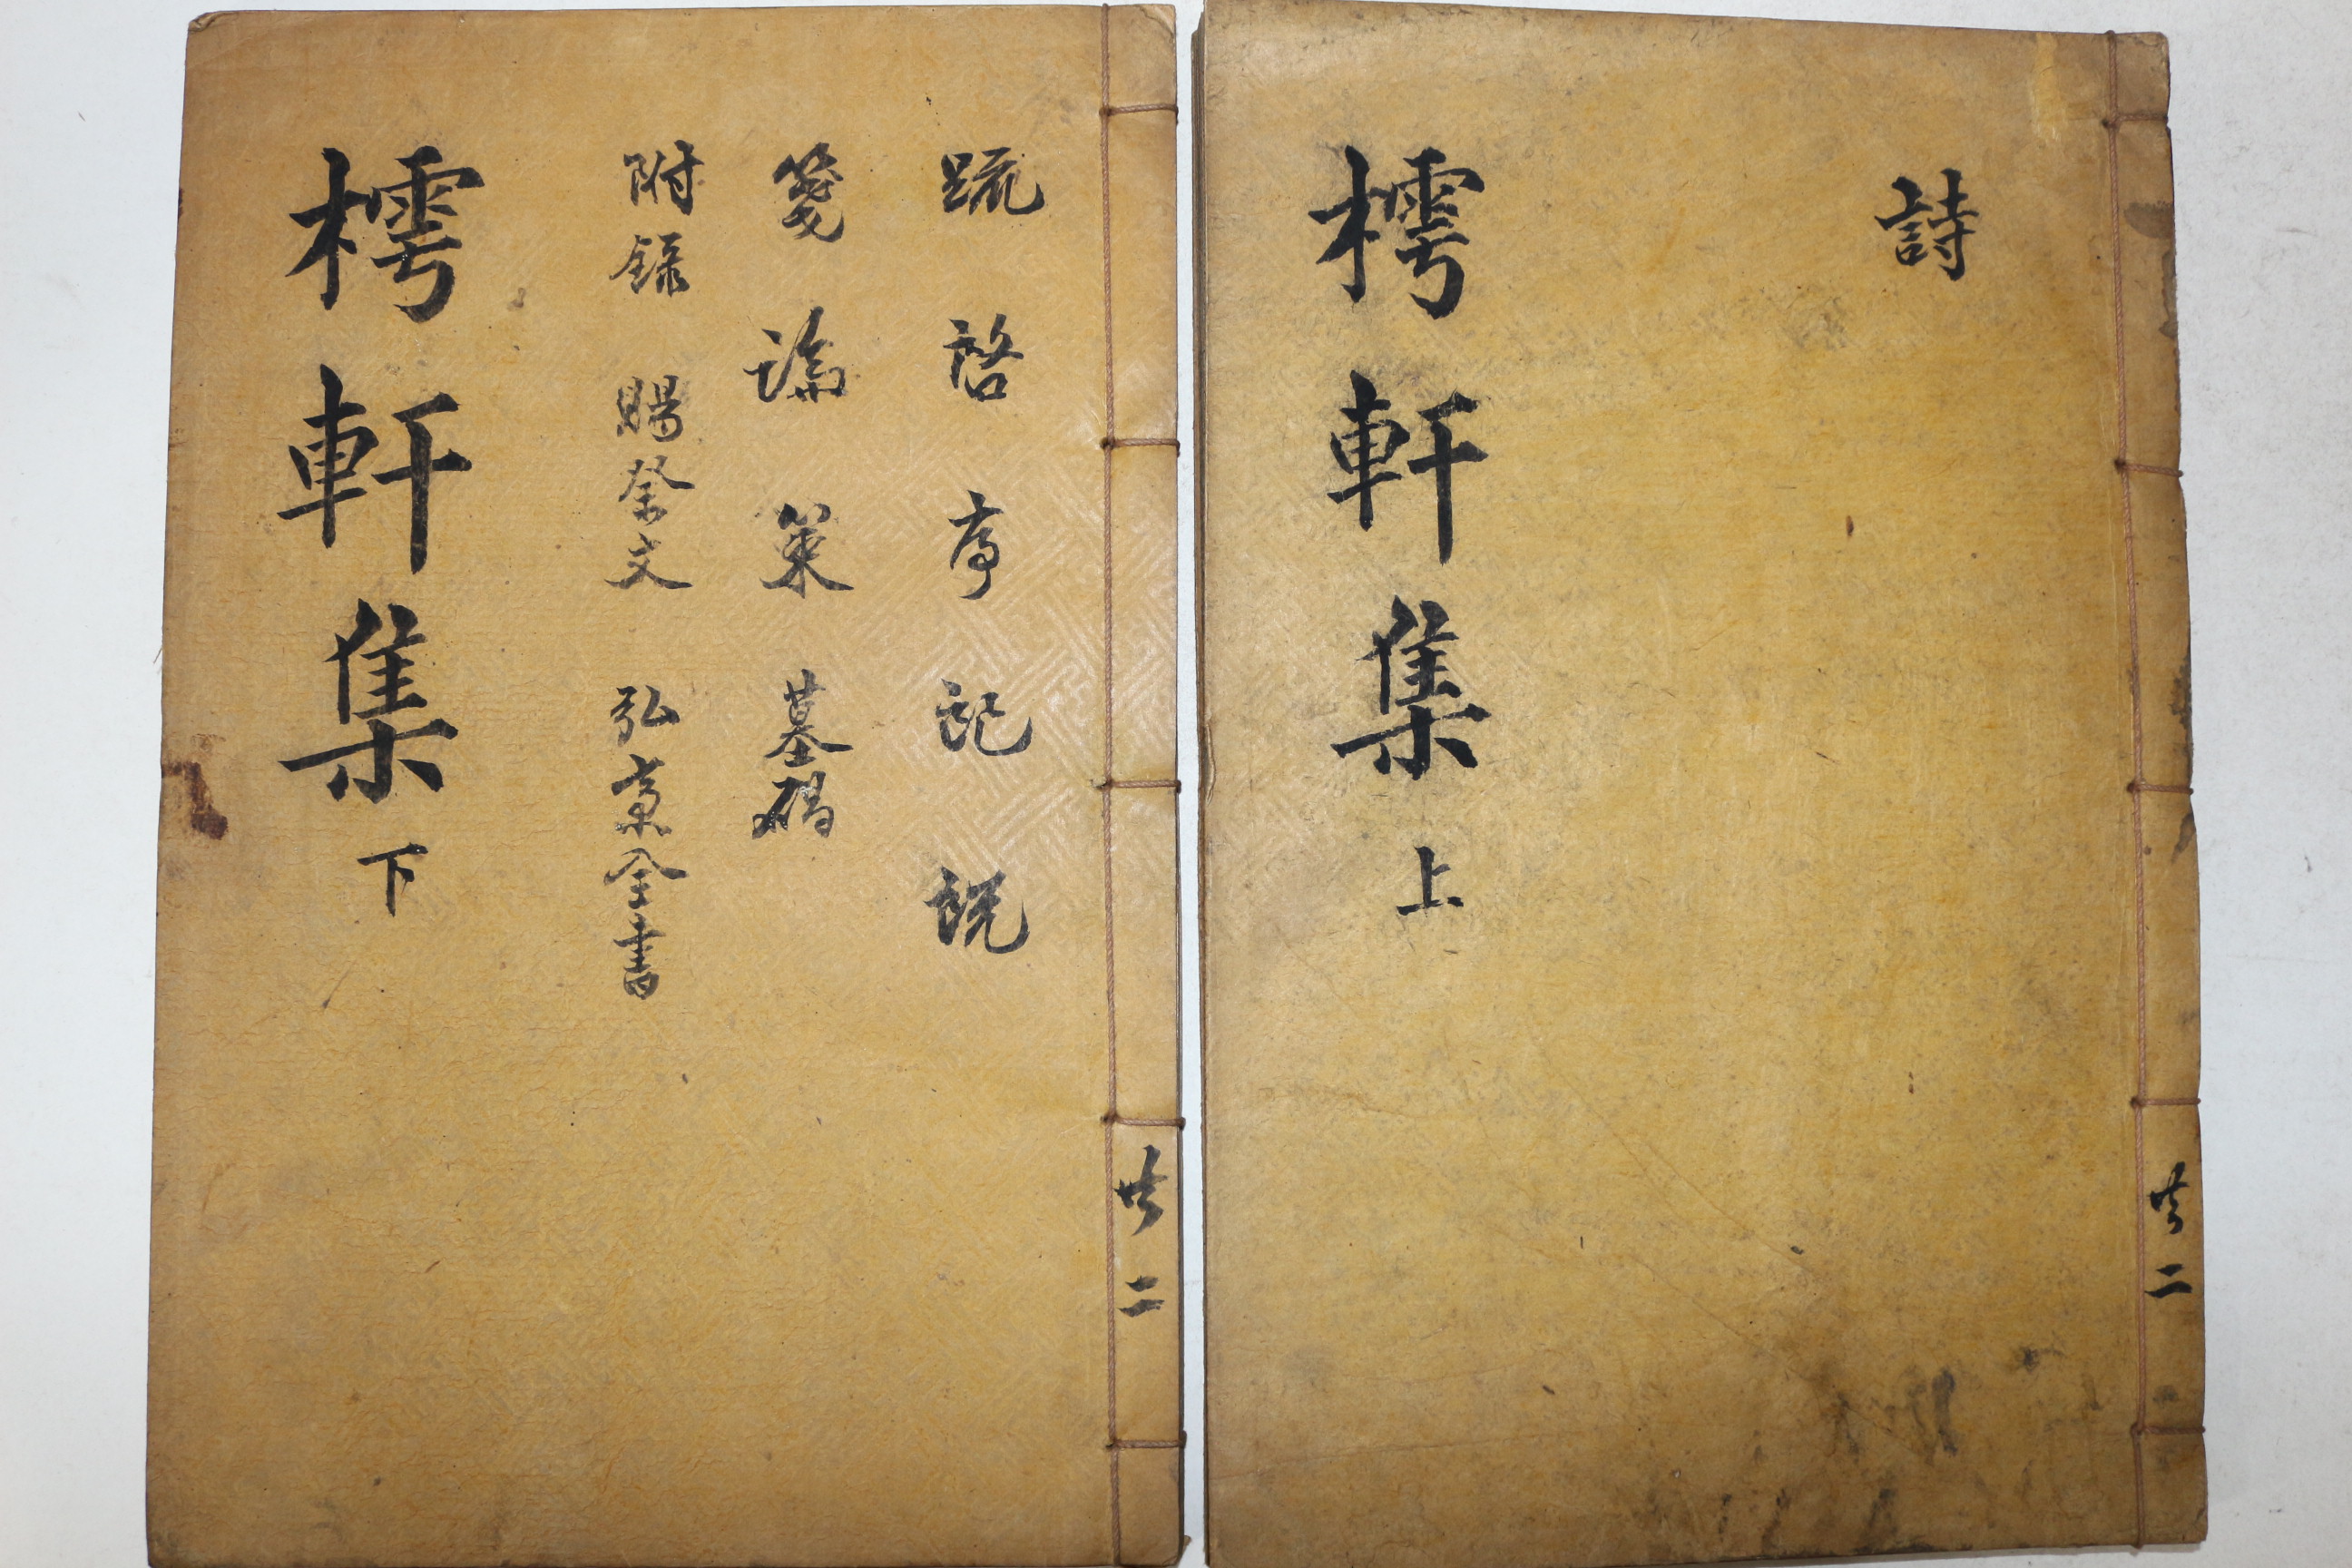 共二
詩
樗軒集 上
共二
䟽 啓 序 記 説
箋 論 策 墓碣
附錄 賜祭文 弘齋全書
樗軒集 下